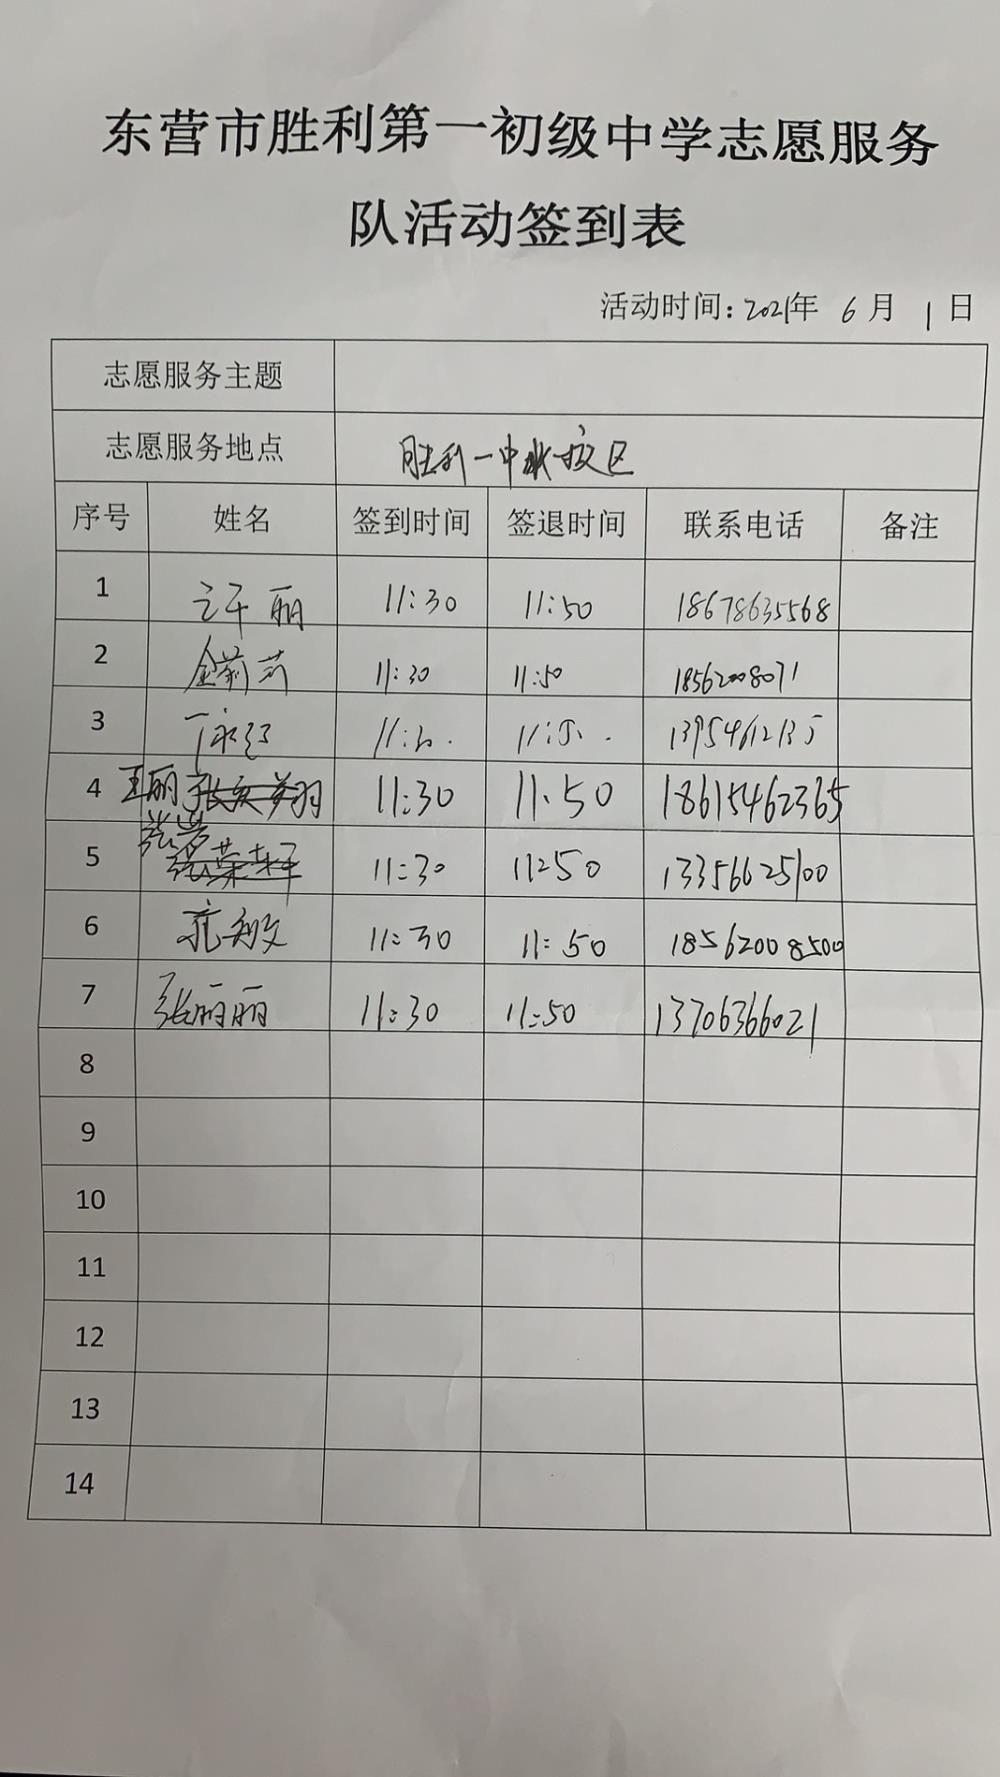 东营市胜利第一初级中学志愿服务
队活动签到表
活动时间:2021年 6月 1日
志愿服务主题
志愿服务地点 胜利一中 校区
序号 姓名 签到时间 签退时间 联系电话 备注
1 许丽 11:30 11:50 18678635568
2 金莉莉 11:30 11:50 18562008071
3 11:30. 11:50. 13954612135
4 王丽 11:30 11:50 18615462365
5 11:30 11:50 13356625100
6 11:30 11:50 18562008500
7 张丽丽 11:30 11:50 13706366021
8
9
10
11
12
13
14